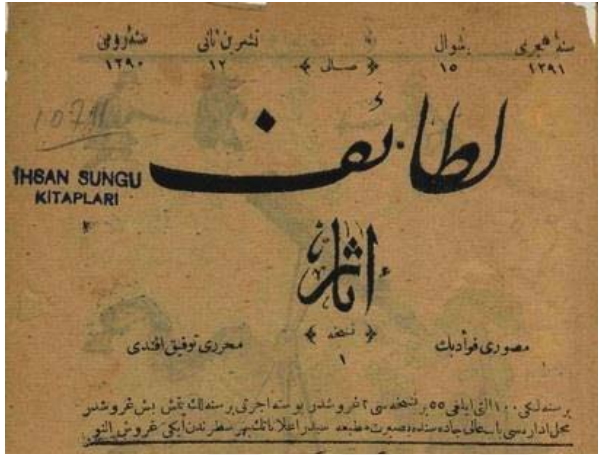 سنهٔ هجری شوال تشرین ثانی سنهٔ رومی
١٢٩١ ١٥ صالی ١٢ ١٢٩٠
1071
لطائف
İHSAN SUNGU
KİTAPLARI
آثار
مصوری فؤاد بك نسخه محرری توفیق افندی
١
بر سنه لكی ١٠٠ التی ایلغی ٥٥ بر نسخه سی ٢ غروشدر پوسته اجرتی بر سنه لك یتمش بش غروشدر
محل اداره سی باب عالی جاده سنده بصیرت مطبعه سیدر اعلاناتك بهر سطرندن ایكی غروش النور